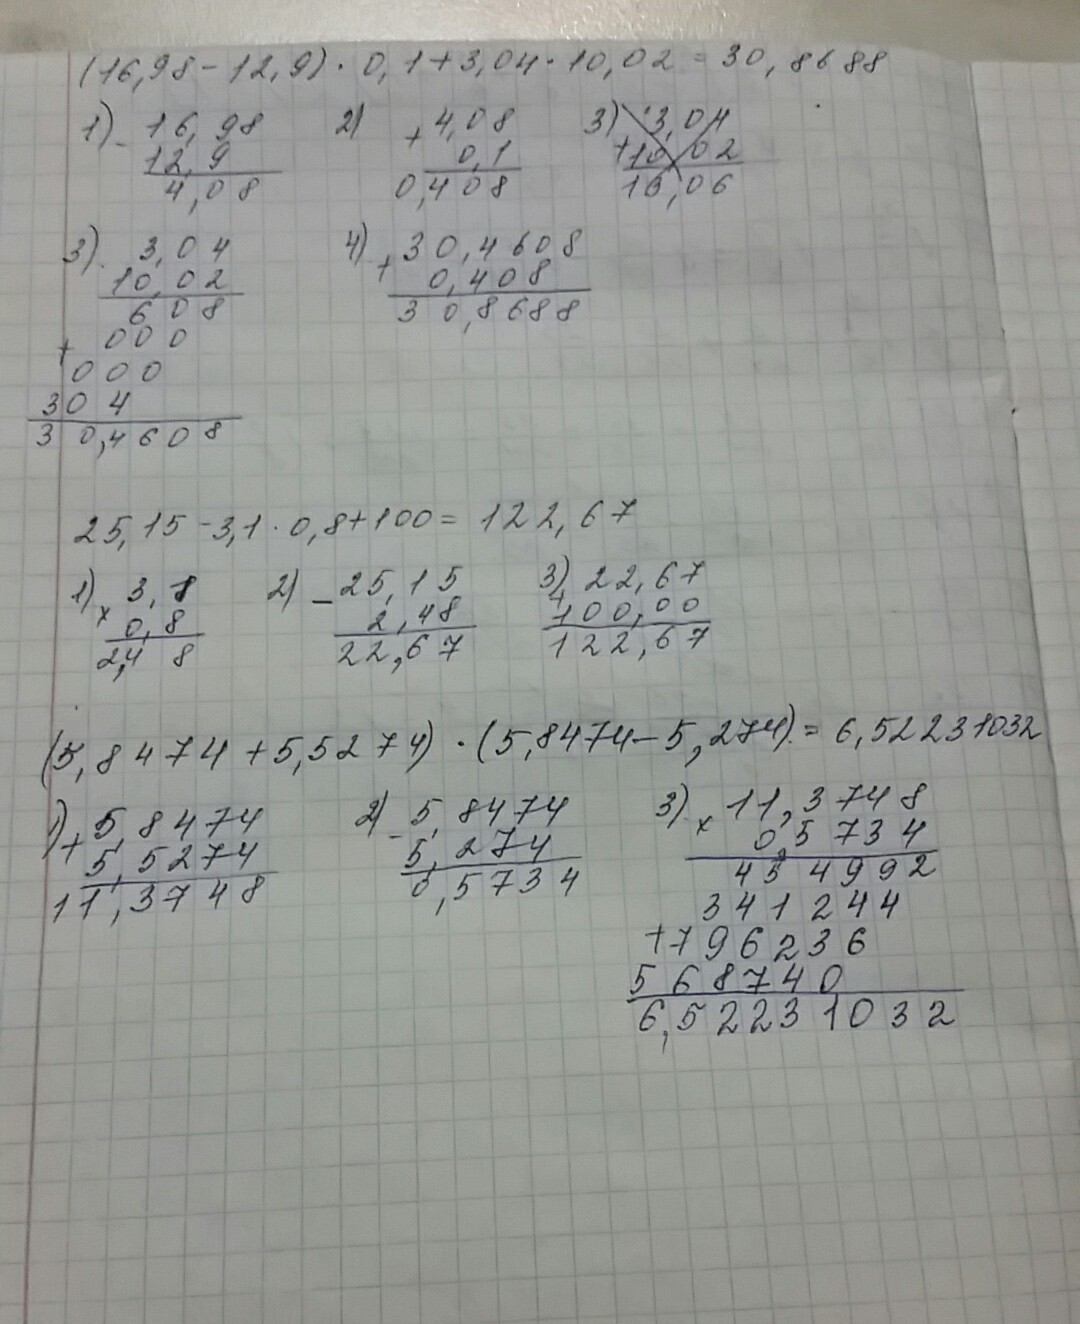 (16,98-12,9)·0,1+3,04·10,02=30,8688
1) - 16,98 2) + 4,08 3) 3,04
12,9 0,1 +10,02
4,08 0,408 13,06
3) · 3,04 4) + 30,4608
10,02 0,408
608 30,8688
+ 000
000
304
30,4608
25,15-3,1·0,8+100=122,67
1) × 3,1 2) - 25,15 3) + 22,67
0,8 2,48 100,00
2,48 22,67 122,67
(5,8474+5,5274)·(5,8474-5,274)=6,52231032
1) + 5,8474 2) - 5,8474 3) × 11,3748
5,5274 5,274 0,5734
11,3748 0,5734 454992
341244
+796236
568740
6,52231032